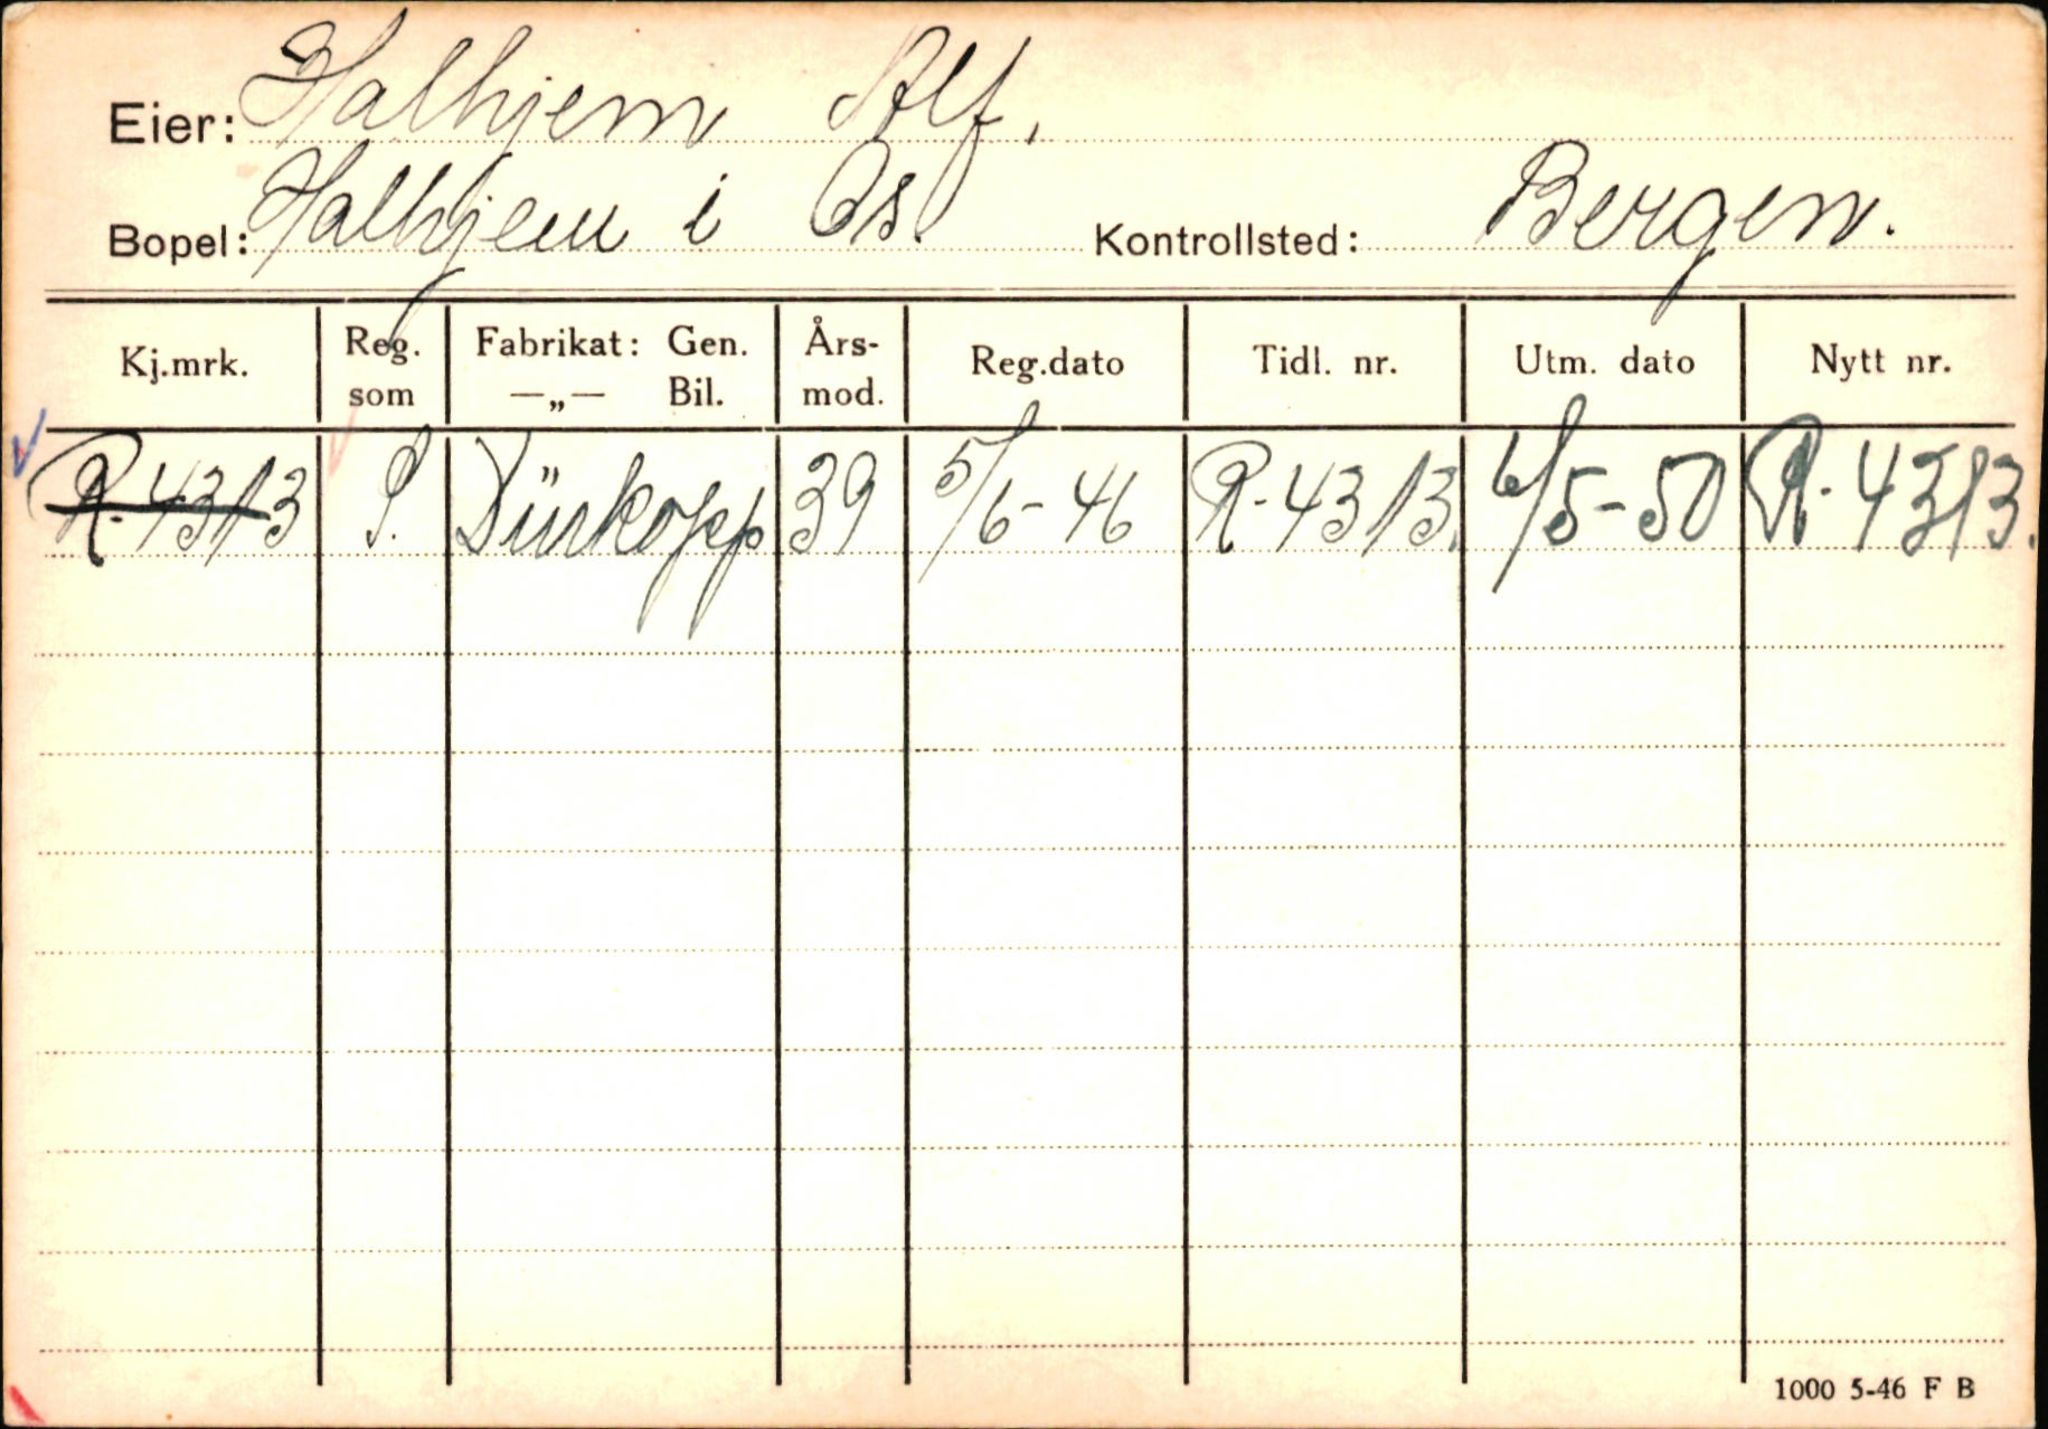 Eier: Halhjem Alf.
Bopel: Halhjem i Os. Kontrollsted: Bergen.
Kj.mrk. Reg. som Fabrikat: Gen. —„— Bil. Års-mod. Reg.dato Tidl. nr. Utm. dato Nytt nr.
R-4313 P. Dürkopp 39 5/6-46 R-4313. 6/5-50 R-4313.
1000 5-46 F B